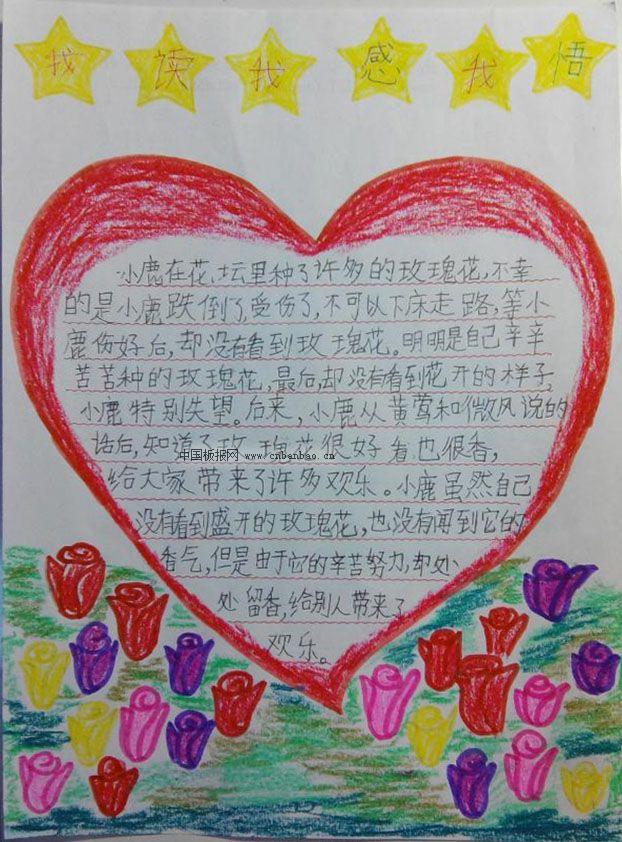 我读我感我悟
小鹿在花坛里种了许多的玫瑰花,不幸
的是小鹿跌倒了,受伤了,不可以下床走路,等小
鹿伤好后,却没有看到玫瑰花。明明是自己辛辛
苦苦种的玫瑰花,最后,却没有看到花开的样子,
小鹿特别失望。后来,小鹿从黄莺和微风说的
话后,知道了玫瑰花很好看也很香,
中国板报网 www.cnbanbao.cn
给大家带来了许多欢乐。小鹿虽然自己
没有看到盛开的玫瑰花,也没有闻到它的
香气,但是由于它的辛苦努力,却处
处留香,给别人带来了
欢乐。